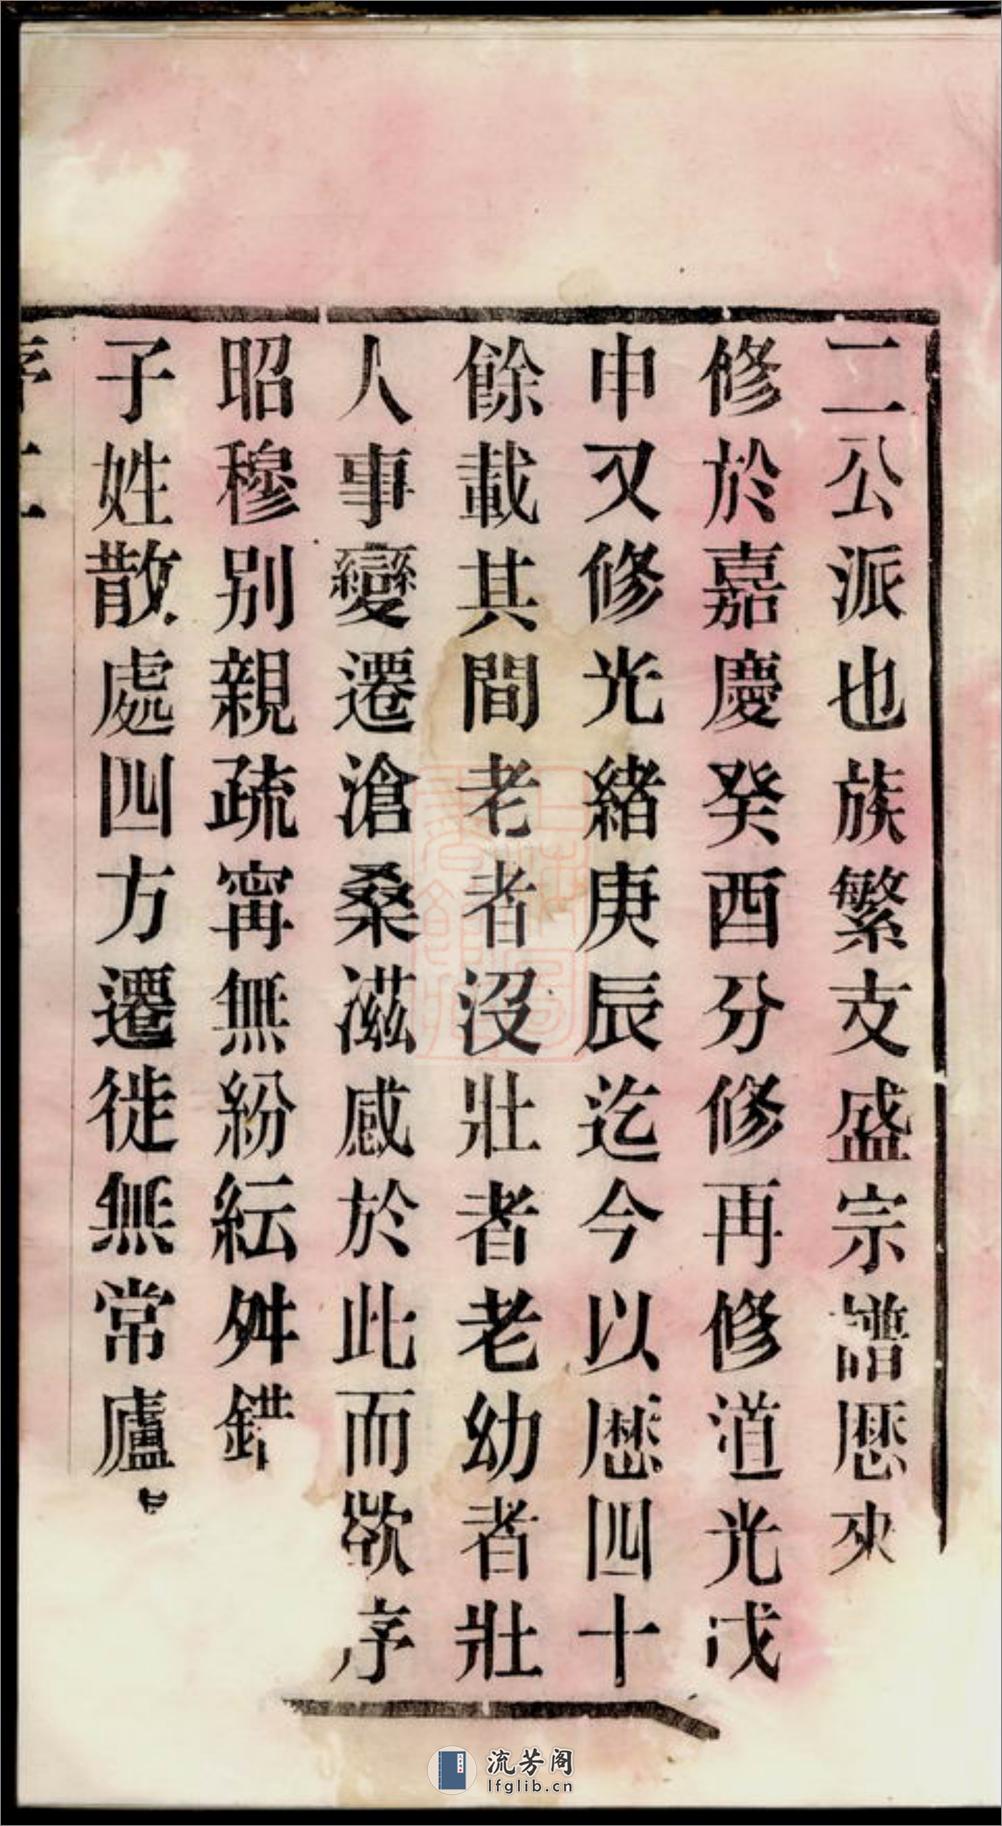 二公派也族繁支盛宗譜歷來
修於嘉慶癸酉分修再修道光戊
申又修光緒庚辰迄今以歷四十
餘載其間老者沒壯者老幼者壯
人事變遷滄桑滋感於此而欲序
昭穆別親疏甯無紛紜舛錯
子姓散處四方遷徙無常廬
序二
流芳阁
lfglib.cn